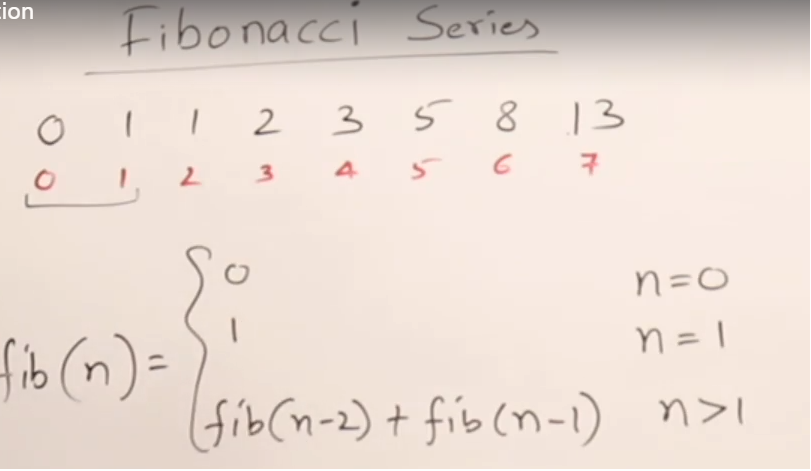 ion
Fibonacci Series
0 1 1 2 3 5 8 13
0 1 2 3 4 5 6 7
0 n=0
1 n=1
fib(n)=
fib(n-2)+fib(n-1) n>1